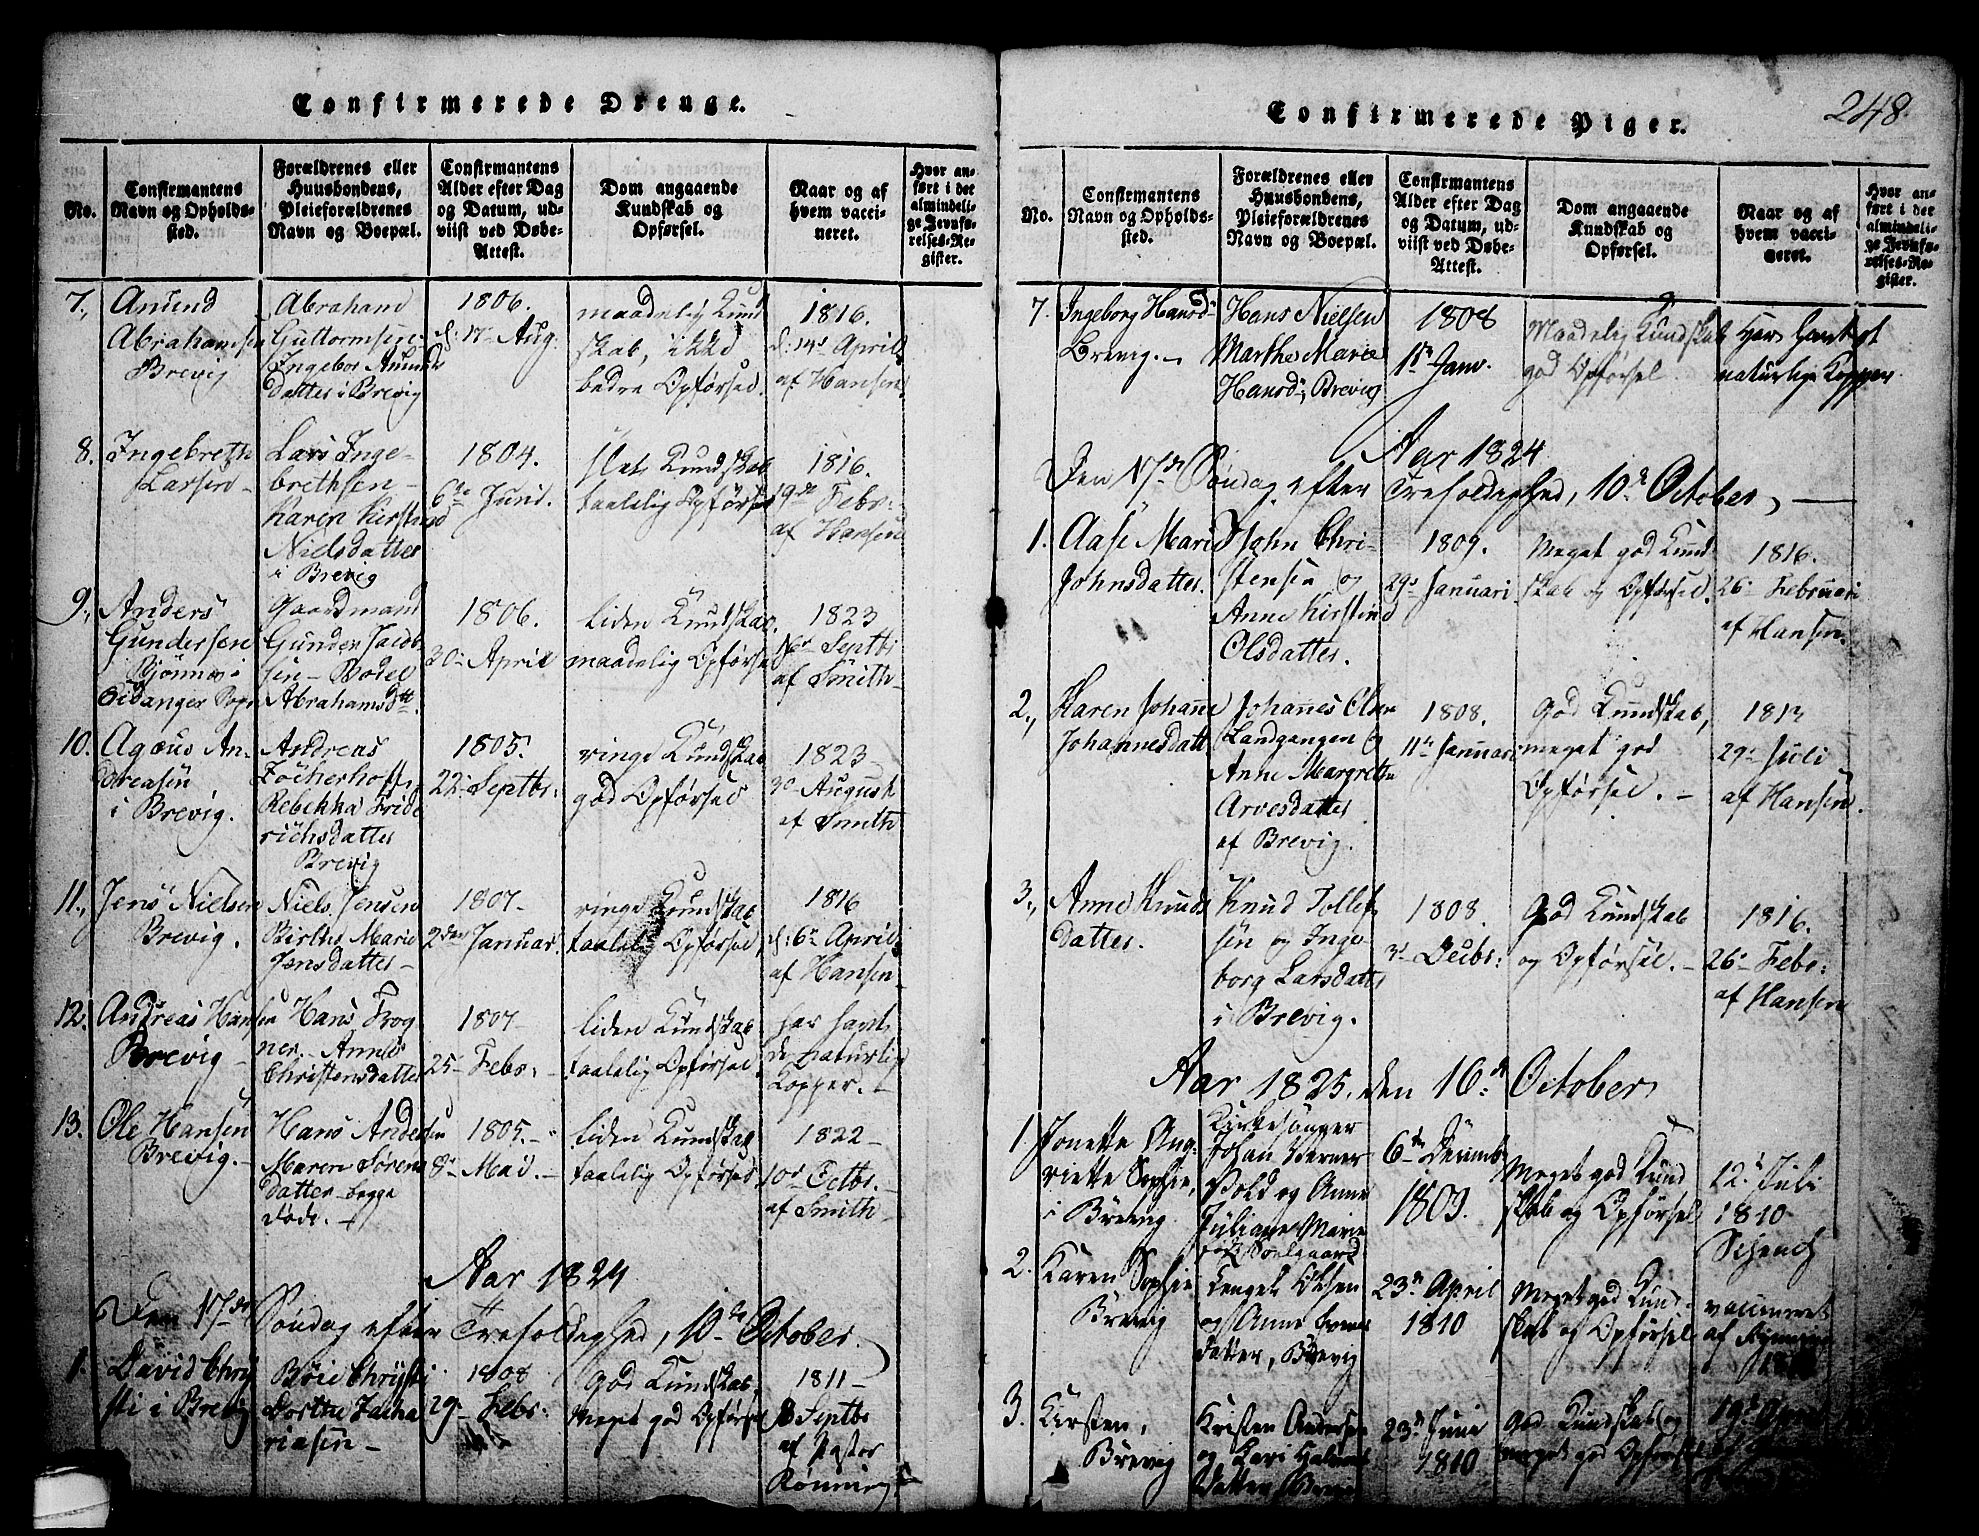 Confirmerede Drenge.
No.
Confirmantens
Navn og Opholds-
sted.
Forældrenes eller
Huusbondens,
Pleieforældrenes
Navn og Boepæl.
Confirmantens
Alder efter Dag
og Datum, ud-
viist ved Døbe-
Attest.
Dom angaaende
Kundskab og
Opførsel.
Naar og af
hvem vacci-
neret.
Hvor an-
ført i det
almindeli-
ge Jevnfø-
relses-Re-
gister.
7.,
Amund
Abrahamsen
Brevig
Abraham
Guttormsen
Ingebor Amunds
datter i Brevig
1806.
d: 17 Aug.
maadelig Kund
skab, ikke
bedre Opførsel.
1816.
d: 14de April
af Hansen
8.
Ingebreth
Larsen
Lars Inge-
brethsen
Karen Kirstine
Nielsdatter
i Brevig
1804.
6te Juni.
slet Kundskab
taalelig Opførsel
1816.
19de Febr:
af Hansen
9.,
Anders
Gundersen
Bjønnes i
Eidanger Sogn
Gaardmand
Gunder Jacob
sen Bodel
Abrahamsdtt.
1806.
30- April
liden Kundskab.
maadelig Opførsel
1823
16de Septbr
af Smith
10.
Agæus An-
dreasen
i Brevig.
Andreas
Zöcherhoff,
Rebekka Fride
richsdatter
Brevig
1805.
22- Septbr:
ringe Kundskab
god Opførsel
1823
30- August
af Smith
11.,
Jens Nielsen
Brevig.
Niels Jensen
Birthe Marie
Jensdatter
1807
2den Januar.
ringe Kundskab
taalelig Opførsel
1816
d: 6te April
af Hansen
12.
Andreas Hansen
Brevig
Hans Frog
ner. Anne
Christensdatter
1807
25- Febr:
liden Kundskab
taalelig Opførsel.
har havt
de naturlig
Kopper.
13.
Ole Hansen
Brevig.
Hans Andersen
Maren Sørens
datter begge
døde.
1805.
8- Mai.
liden Kundskab
taalelig Opførsel
1822
10de Octbr.
af Smith
Aar 1824
Den 17de Søndag efter Trefoldighed, 10de October.
1.
David Chry
sti i Brevig
Börie Chrysti
Dorthe Zacha
riasen
1808
29- Febr:
God Kundskab,
Meget god Opførsel
1811
8 Septbr
af Pastor
Rønning
Confirmerede Piger.
248.
No.
Confirmantens
Navn og Opholds-
sted.
Forældrenes eller
Huusbondens,
Pleieforældrenes
Navn og Boepæl.
Confirmantens
Alder efter Dag
og Datum, ud-
viist ved Døbe-
Attest.
Dom angaaende
Kundskab og
Opførsel.
Naar og af
hvem vacci-
neret.
Hvor an-
ført i det
almindeli-
ge Jevnfø-
relses-Re-
gister.
7.
Ingeborg Hansd:
Brevig.
Hans Nielsen
Marthe Marie
Hansd: Brevig
1808
Janv.
Maadelig Kundskab
god Opførsel
Har havt
naturlige Kopper
Aar 1824
Den 17de Søndag efter Trefoldighed, 10de October,
1.
Aase Marie
Johnsdatter.
John Chri-
stensen og
Anne Kirstine
Olsdatter.
1809.
29- Januari.
Meget god Kund
skab og Opførsel.
1816.
26- Februari
af Hansen.
2.,
Karen Johanne
Johannesdatt
Johannes Olsen
Landgangen og
Anne Margrethe
Arvesdatter
af Brevig.
1808.
11te Januari
God Kundskab,
meget god
Opførsel.
29- Juli
af Hansen.
3.,
Anne Knuds
datter.
Knud Tollef
sen og Inge
borg Larsdatter
i Brevig.
1808.
Decbr:
God Kundskab
og Opførsel.
1816.
26- Febr:
af Hansen
Aar 1825, den 16de October
1.
Jonette Ang-
riette Sophie,
i Brevig
Kirkesanger
Johan Werner
Bold og Anne
Juliane Marie
født Soelgaard
6te Decemb
1809.
Meget god Kund
skab og Opførsel
12te Juli
1810
Schench
2.
Karen Sophie
Brevig
Olsen
og Anne
datter, Brevig
23de April
1810
Meget god Kund-
skab og Opførsel
vaccineret
af
3.
Kirsten,
Brevig
Kristen Andersen
og Kari Halvors
datter, Brevig
23de Juni
1810
God Kundskab og
meget god Opførsel
19de April